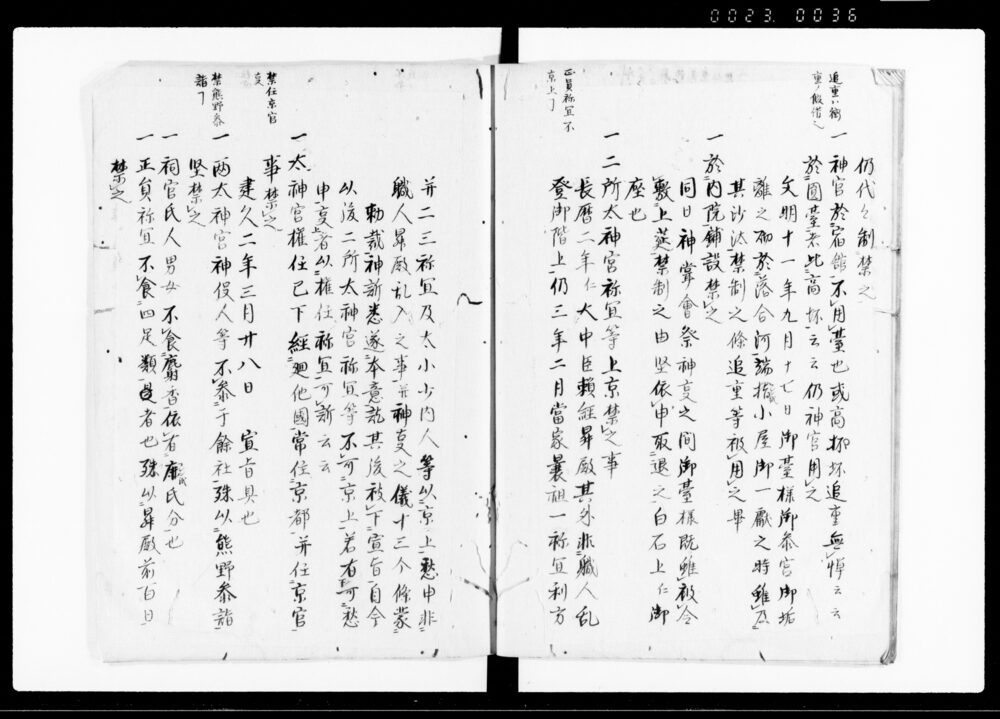 0023. 0036
追重ハ衡
重ノ假借也
仍代々制禁之
一神官於宿館不用臺也或高坏追重無憚云云
於圓臺者比高坏云云仍神官用之
文明十一年九月十七日御臺様御参宮御垢
離之砌於落合河端搆小屋御一獻之時雖及
其沙汰禁制之條追重等被用之畢
一於内院鋪設禁之
同日神甞會祭神叓之間御臺様既雖被令
敷上莚禁制之由堅依申取退之白石上仁御
座也
正員祢宜不
京上了
一二所太神宮祢宜等上京禁之事
長曆二年仁大中臣賴經昇殿其外非職人乱
登御階上仍三年二月當家曩祖一祢宜利方
并二三祢宜及太小少内人等以京上愁申非
職人昇殿乱入之事并神叓之儀十三个條蒙
勅裁神訴悉遂本意訖其後被下宣旨自今
以後二所太神宮祢宜等不可京上若有可愁
申叓者以權任祢宜可訴云云
禁住京官
叓
一太神宮權任已下經廻他國常住京都并任京官
事禁之
建久二年三月廿八日 宣旨具也
禁熊野参
詣了
一兩太神宮神役人等不参于餘社殊以熊野参詣
堅禁之
一祠官氏人男女不食麝香依有庿氏分也
一正員祢宜不食四足類是者也殊以昇殿前百日
禁之